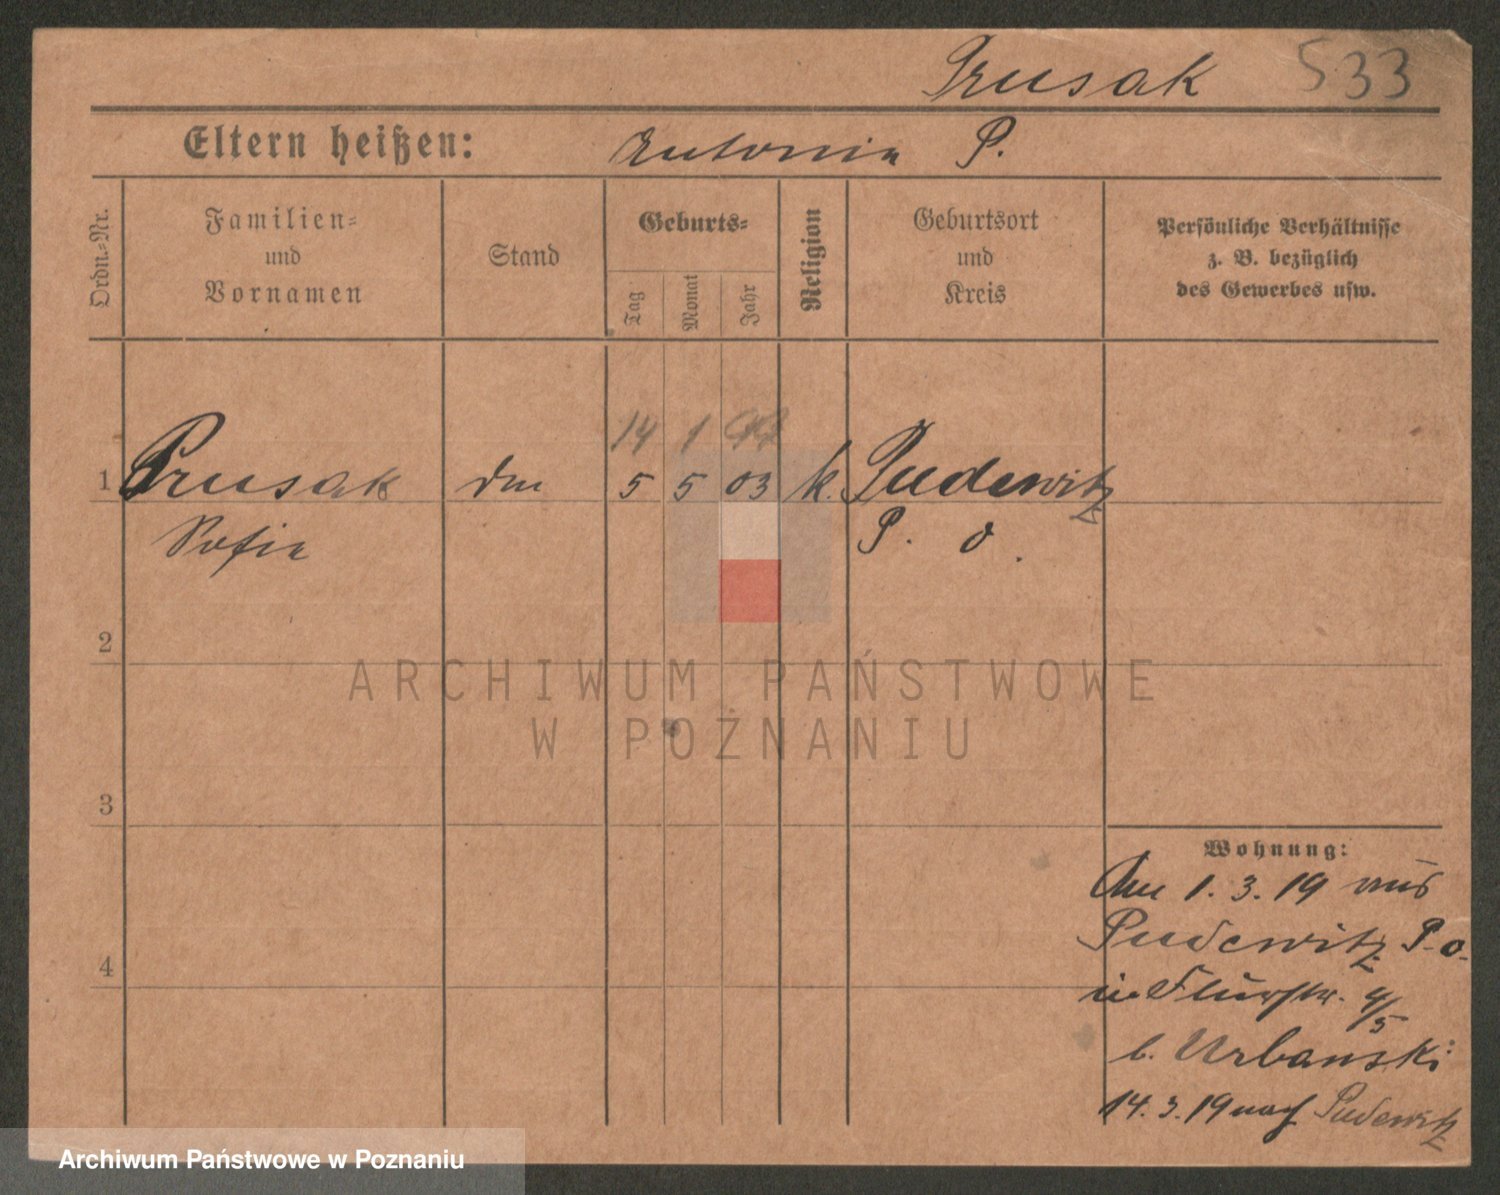 Prusak 533
Eltern heißen: Antonia P.
Ordn.-Nr.
Familien-
und
Vornamen
Stand
Geburts-
Tag
Monat
Jahr
Religion
Geburtsort
und
Kreis
Persönliche Verhältnisse
z. B. bezüglich
des Gewerbes usw.
14 1
1 Prusak 5 5 03 k. Pudewitz
Sofia P. O.
2
ARCHIWUM PAŃSTWOWE
W POZNANIU
3
Wohnung:
Am 1.3.19 aus
Pudewitz P.O.
in Flurstr. 4/5
b. Urbanski
4
14.3.19 nach Pudewitz
Archiwum Państwowe w Poznaniu